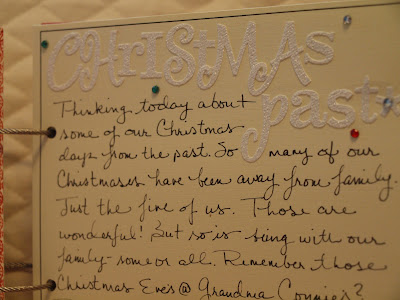 CHRISTMAS
past
Thinking today about
some of our Christmas
days from the past. So many of our
Christmases have been away from family.
Just the five of us. Those are
wonderful! But so is being with our
family - some or all. Remember those
Christmas Eves @ Grandma Connie's?